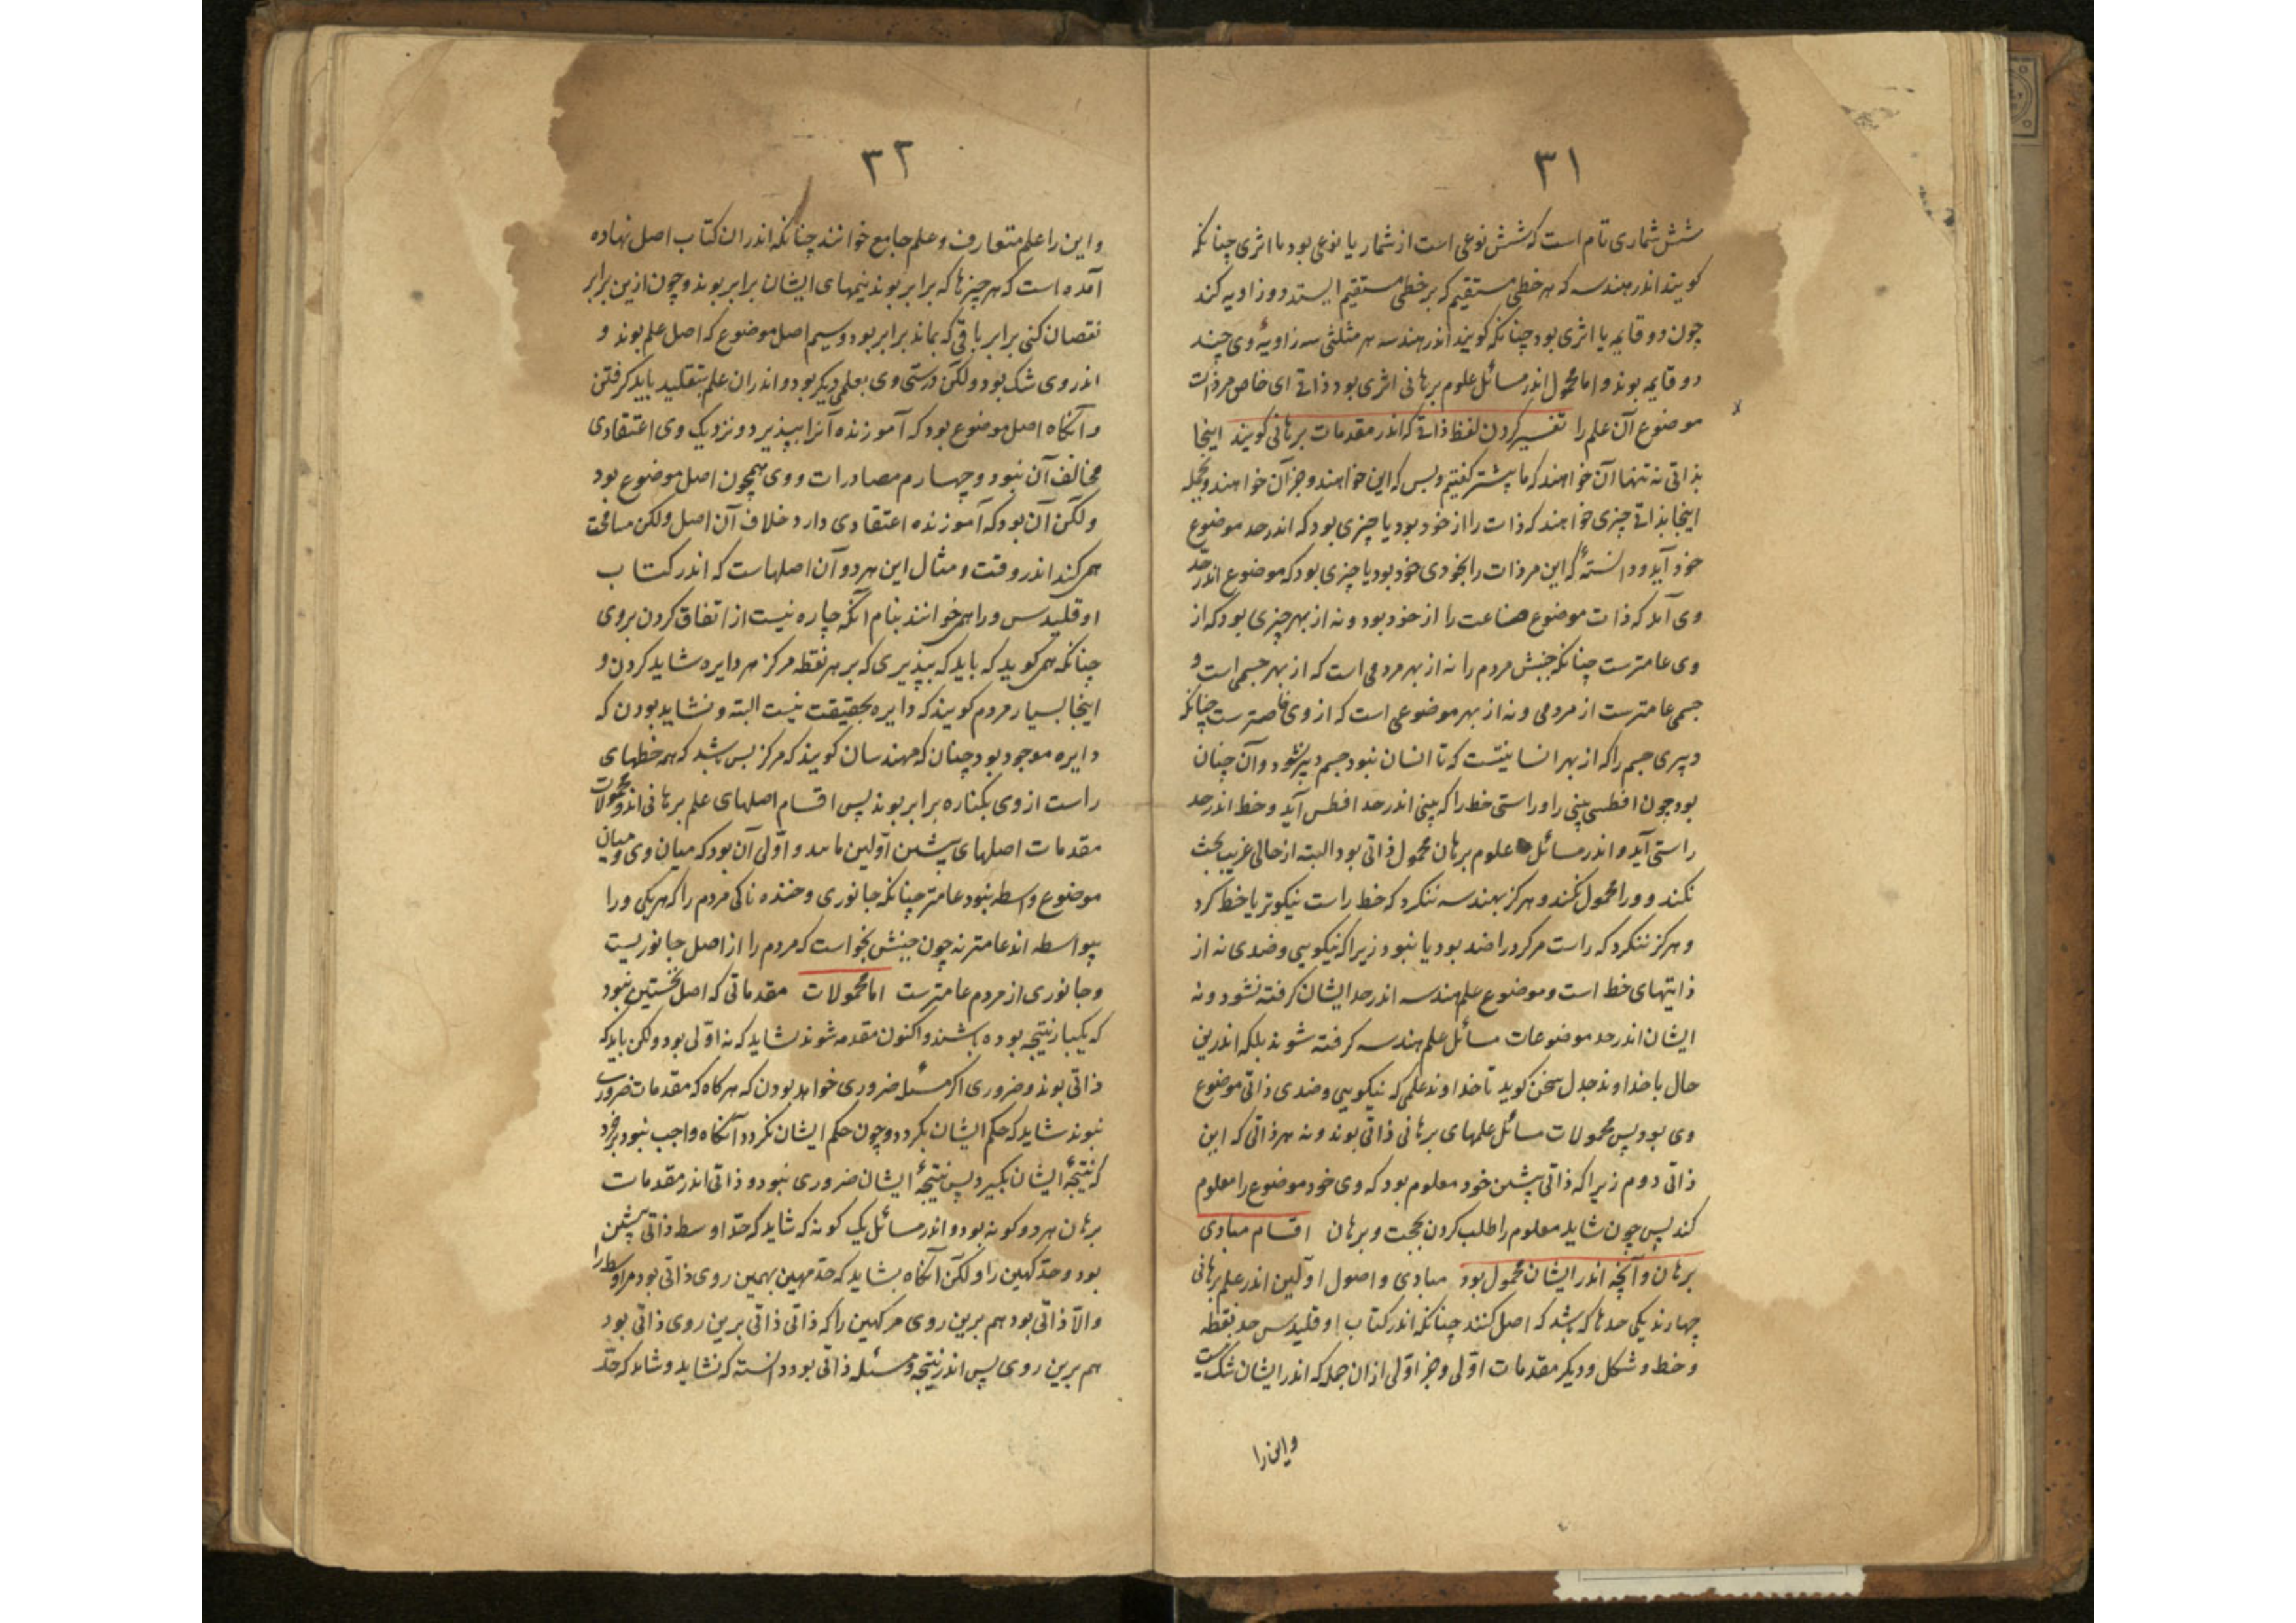 ۳۱
شش شماری تام است که شش نوعی است از شمار یا نوعی بود با اثری چنانکه
کویند اندر هندسه که هر خطی مستقیم که بر خطی مستقیم ایستد دو زاویه کند
چون دو قایمه یا اثری بود چنانکه کویند اندر هندسه هر مثلثی سه زاویهٔ وی چند
دو قایمه بوند و اما محمول اندر مسائل علوم برهانی اثری بود ذاتی ای خاص مر ذات
موضوع آن علم را تفسیر کردن لفظ ذاتی که اندر مقدمات برهانی کویند اینجا
بذاتی نه تنها آن خواهند که ما پیشتر کفتیم و بس که این خواهند و جز آن خواهند و بجمله
اینجا بذاتی چیزی خواهند که ذات را از خود بود یا چیزی بود که اندر حد موضوع
خود آید و دانستهٔ که این مر ذات را بخودی خود بود یا چیزی بود که موضوع اندر حدّ
وی آید که ذات موضوع صناعت را از خود بود و نه از بهر چیزی بود که از
وی عامترست چنانکه جنبش مردم را نه از بهر مردمی است که از بهر جسمی است و
جسمی عامترست از مردمی و نه از بهر موضوعی است که از وی خاصترست چنانکه
دبیری جسم را که از بهر انسانیتست که تا انسان نبود جسم دبیر نشود و آن چنان
بود چون افطسی بینی را و راستی خط را که بینی اندر حد افطس آید و خط اندر حد
راستی آید و اندر مسائل علوم برهان محمول ذاتی بود البته از حالی غریب بحث
نکند و ورا محمول نکند و هرکز بهندسه ننکرد که خط راست نیکوتر یا خط کرد
و هرکز ننکرد که راست مر کرد را ضد بود یا نبود زیرا که نیکویی و ضدی نه از
ذاتیهای خط است و موضوع علم هندسه اندر حد ایشان کرفته نشود و نه
ایشان اندر حد موضوعات مسائل علم هندسه کرفته شوند بلکه اندرین
حال با خداوند جدل سخن کوید تا خداوند علمی که نیکویی و ضدی ذاتی موضوع
وی بود پس محمولات مسائل علمهای برهانی ذاتی بوند و نه هر ذاتی که این
ذاتی دوم زیرا که ذاتی پیشین خود معلوم بود که وی خود موضوع را معلوم
کند پس چون شاید معلوم را طلب کردن بحجت و برهان اقسام مبادی
برهان و آنچه اندر ایشان محمول بود مبادی و اصول اوّلین اندر علم برهانی
چهارند یکی حدها که باشد که اصل کنند چنانکه اندر کتاب اوقلیدس حد نقطه
و خط و شکل و دیکر مقدمات اوّلی و جز اوّلی از ان جمله که اندر ایشان شک نیست
واین را
۳۲
و این را علم متعارف و علم جامع خوانند چنانکه اندر ان کتاب اصل نهاده
آمده است که هر چیزها که برابر بوند نیمهای ایشان برابر بوند و چون ازین برابر
نقصان کنی برابر باقی که بماند برابر بود و سیم اصل موضوع که اصل علم بوند و
اندر وی شک بود و لکن درستی وی بعلمی دیکر بود و اندر ان علم بتقلید باید کرفتن
و آنکاه اصل موضوع بود که آموزنده آنرا بپذیرد و نزدیک وی اعتقادی
مخالف آن نبود و چهارم مصادرات و وی همچون اصل موضوع بود
و لکن آن بود که آموزنده اعتقادی دارد خلاف آن اصل و لکن مسامحت
همی کند اندر وقت و مثال این هر دو آن اصلهاست که اندر کتاب
اوقلیدس ورا همی خوانند بنام آنکه چاره نیست از اتفاق کردن بروی
چنانکه همی کوید که باید که بپذیری که بر هر نقطه مرکز هر دایره شاید کردن و
اینجا بسیار مردم کویند که دایره بحقیقت نیست البته و نشاید بودن که
دایره موجود بود چنان که مهندسان کویند که مرکز بس باشد که همه خطهای
راست از وی بکناره برابر بوند پس اقسام اصلهای علم برهانی اند و محمولات
مقدمات اصلهای پیشین اوّلین و اوّلی آن بود که میان وی و میان
موضوع واسطه نبود عامتر چنانکه جانوری و خنده ناکی مردم را که هر یکی ورا
بیواسطه اند عامتر نه چون جنبش بخواست که مردم را از اصل جانوریست
و جانوری از مردم عامترست اما محمولات مقدماتی که اصل نخستین نبود
که یکبار نتیجه بوده باشند و اکنون مقدمه شوند شاید که نه اوّلی بود و لکن باید که
ذاتی بوند و ضروری اکر مسئله ضروری خواهد بودن که هرکاه که مقدمات ضروری
نبوند شاید که حکم ایشان بکردد و چون حکم ایشان نکردد آنکاه واجب نبود بر خرد
که نتیجهٔ ایشان بکیرد پس نتیجهٔ ایشان ضروری نبود و ذاتی اندر مقدمات
برهان هر دو کونه بود و اندر مسائل یک کونه که شاید که حدّ اوسط ذاتی پیشین
بود و حدّ کهین را و لکن آنکاه بشاید که حدّ مهین بهمین روی ذاتی بود مر اوسط را
والا ذاتی بود هم برین روی مر کهین را که ذاتی ذاتی برین روی ذاتی بود
هم برین روی پس اندر نتیجه و مسئله ذاتی بود دانسته که نشاید و شاید که حدّ